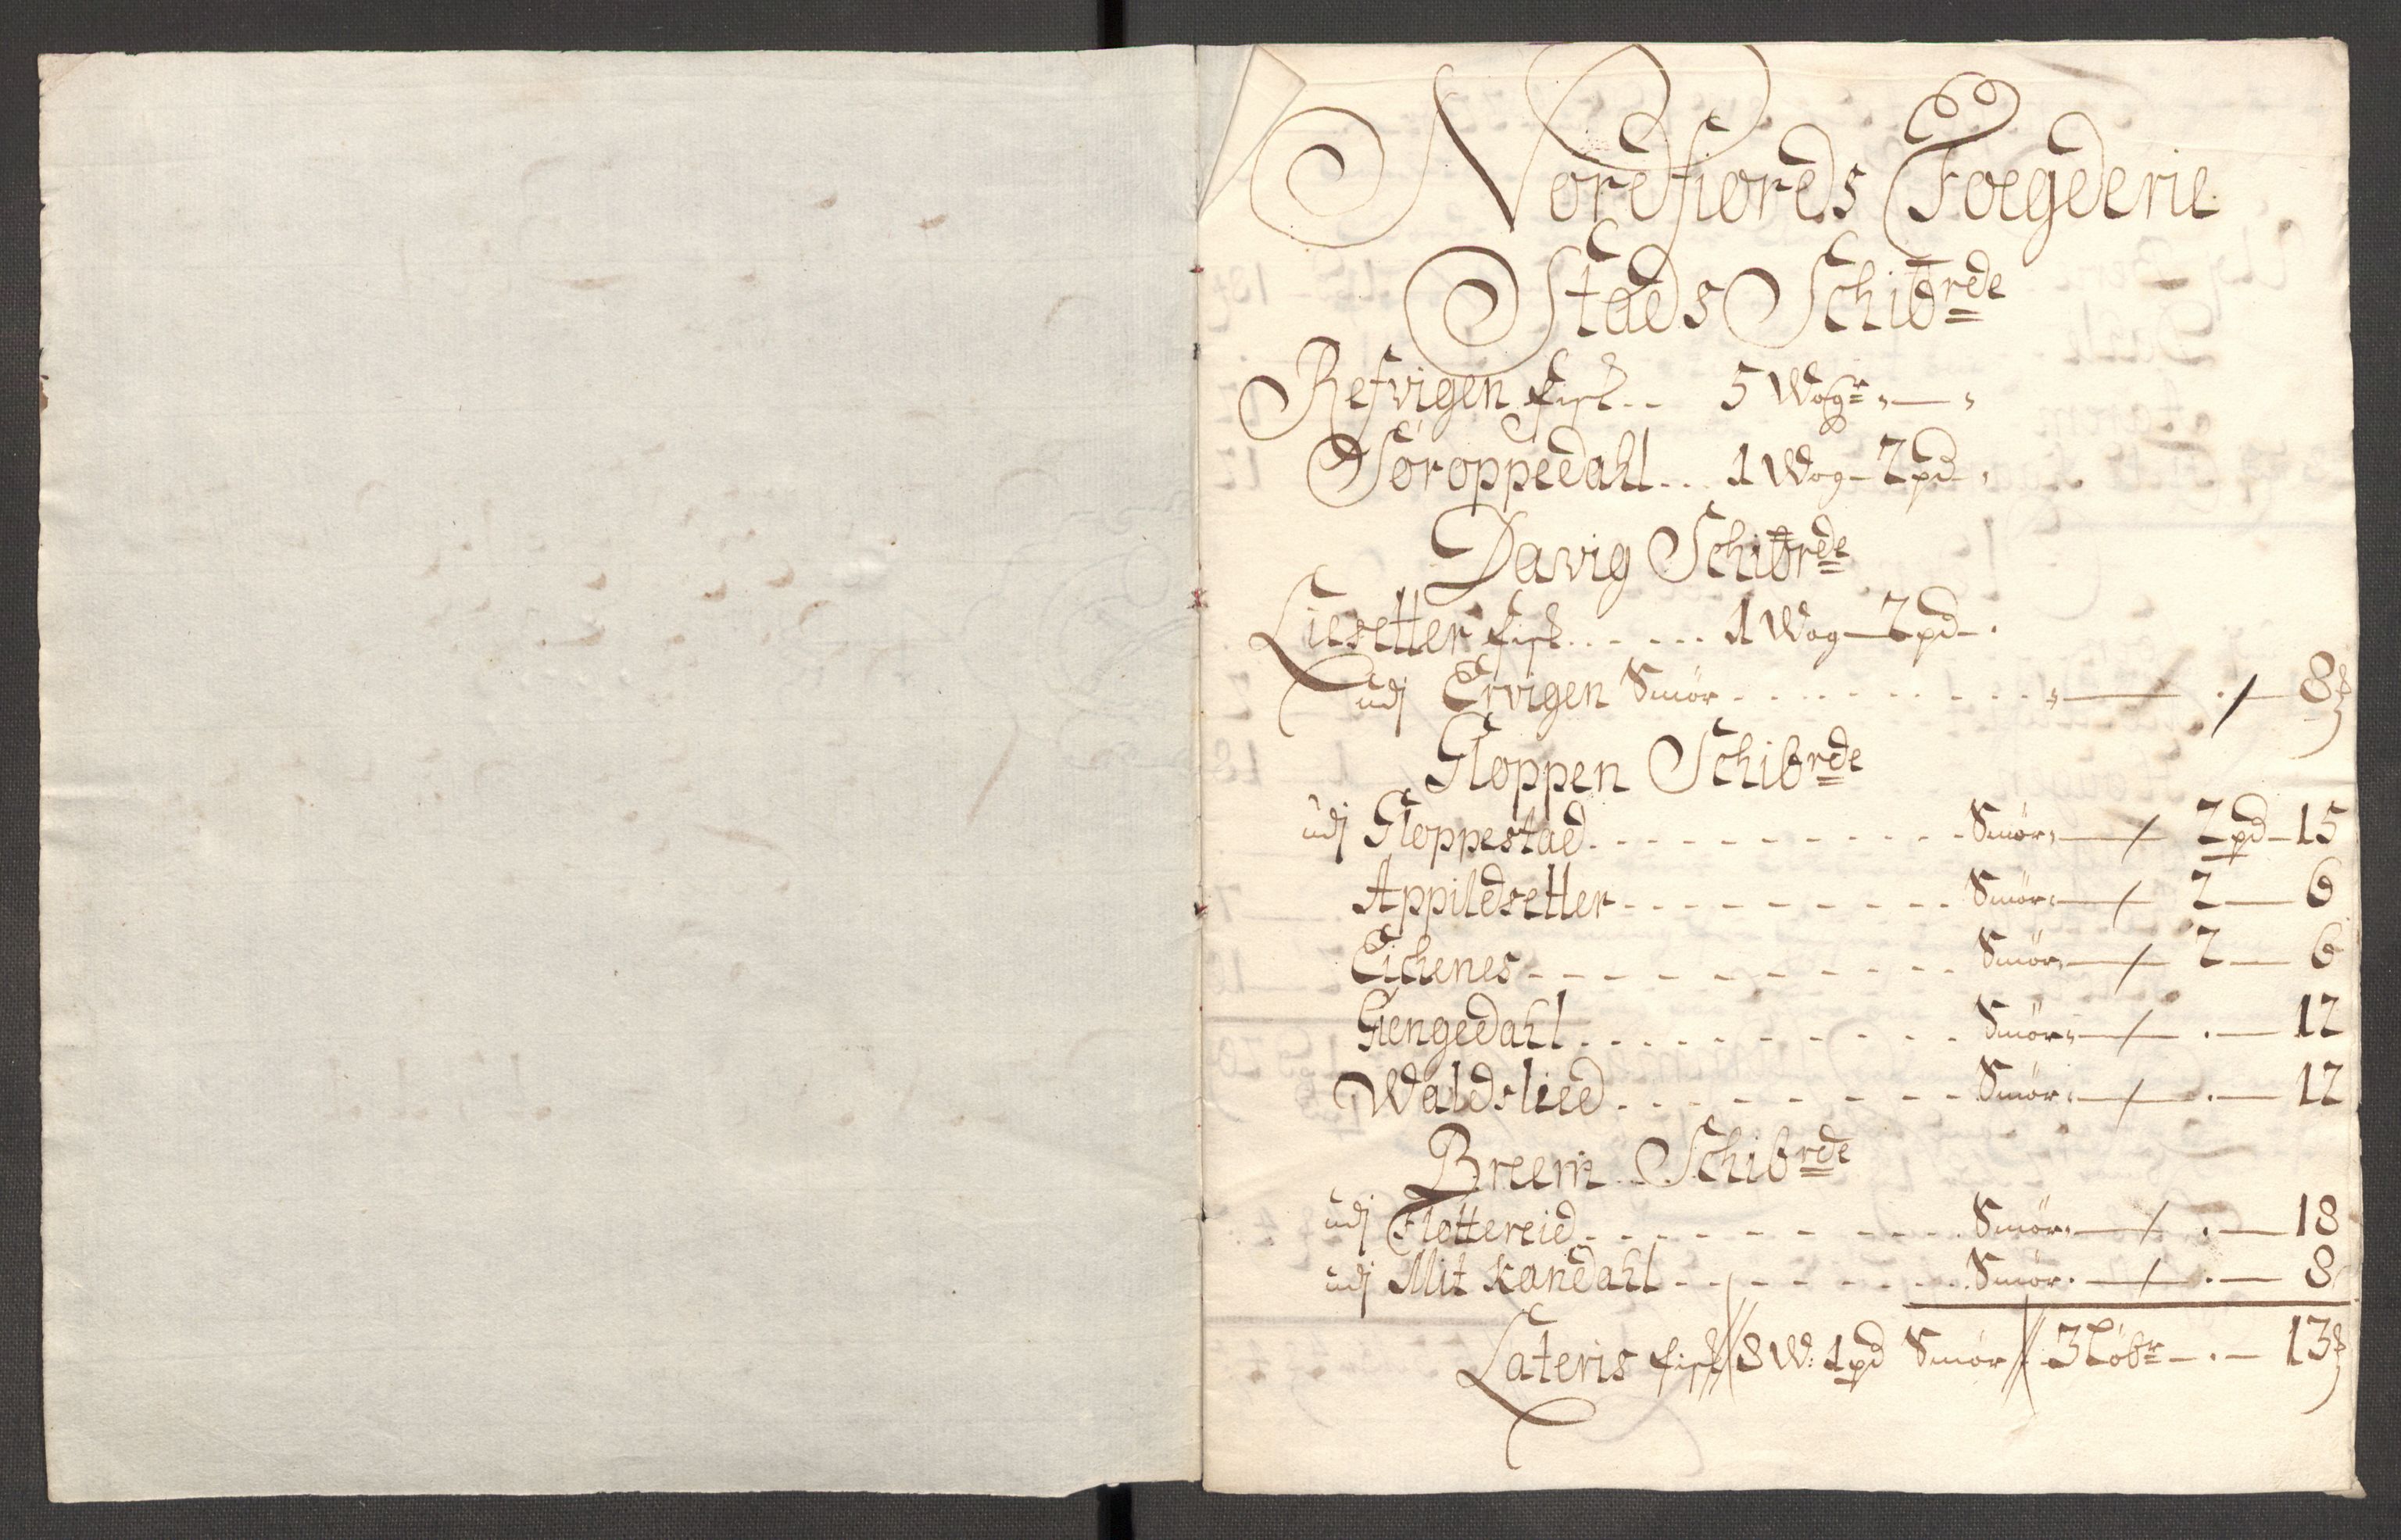 Nordfiords Foegderie
Stads Schibrde
Refvigen fisk .. 5 Wogr
Søroppedahl ... 1 Wog - 2 pd
Davig Schibrde
Liesetter fisk ..... 1 Wog - 2 pd
udj Ervigen Smør ......... 8
Gloppen Schibrde
udj Gloppestad ......... Smør 2 pd 15
Appildsetter ......... Smør 2 6
Eichenes ......... Smør 2 6
Giengedahl ......... Smør 12
Waldslied ......... Smør 12
Breem Schibrde
udj Fløttereid ......... Smør 18
udj Mit Kandahl ......... Smør 8
Lateris fisk 8 W: 1 pd Smør 3 Løbr 13